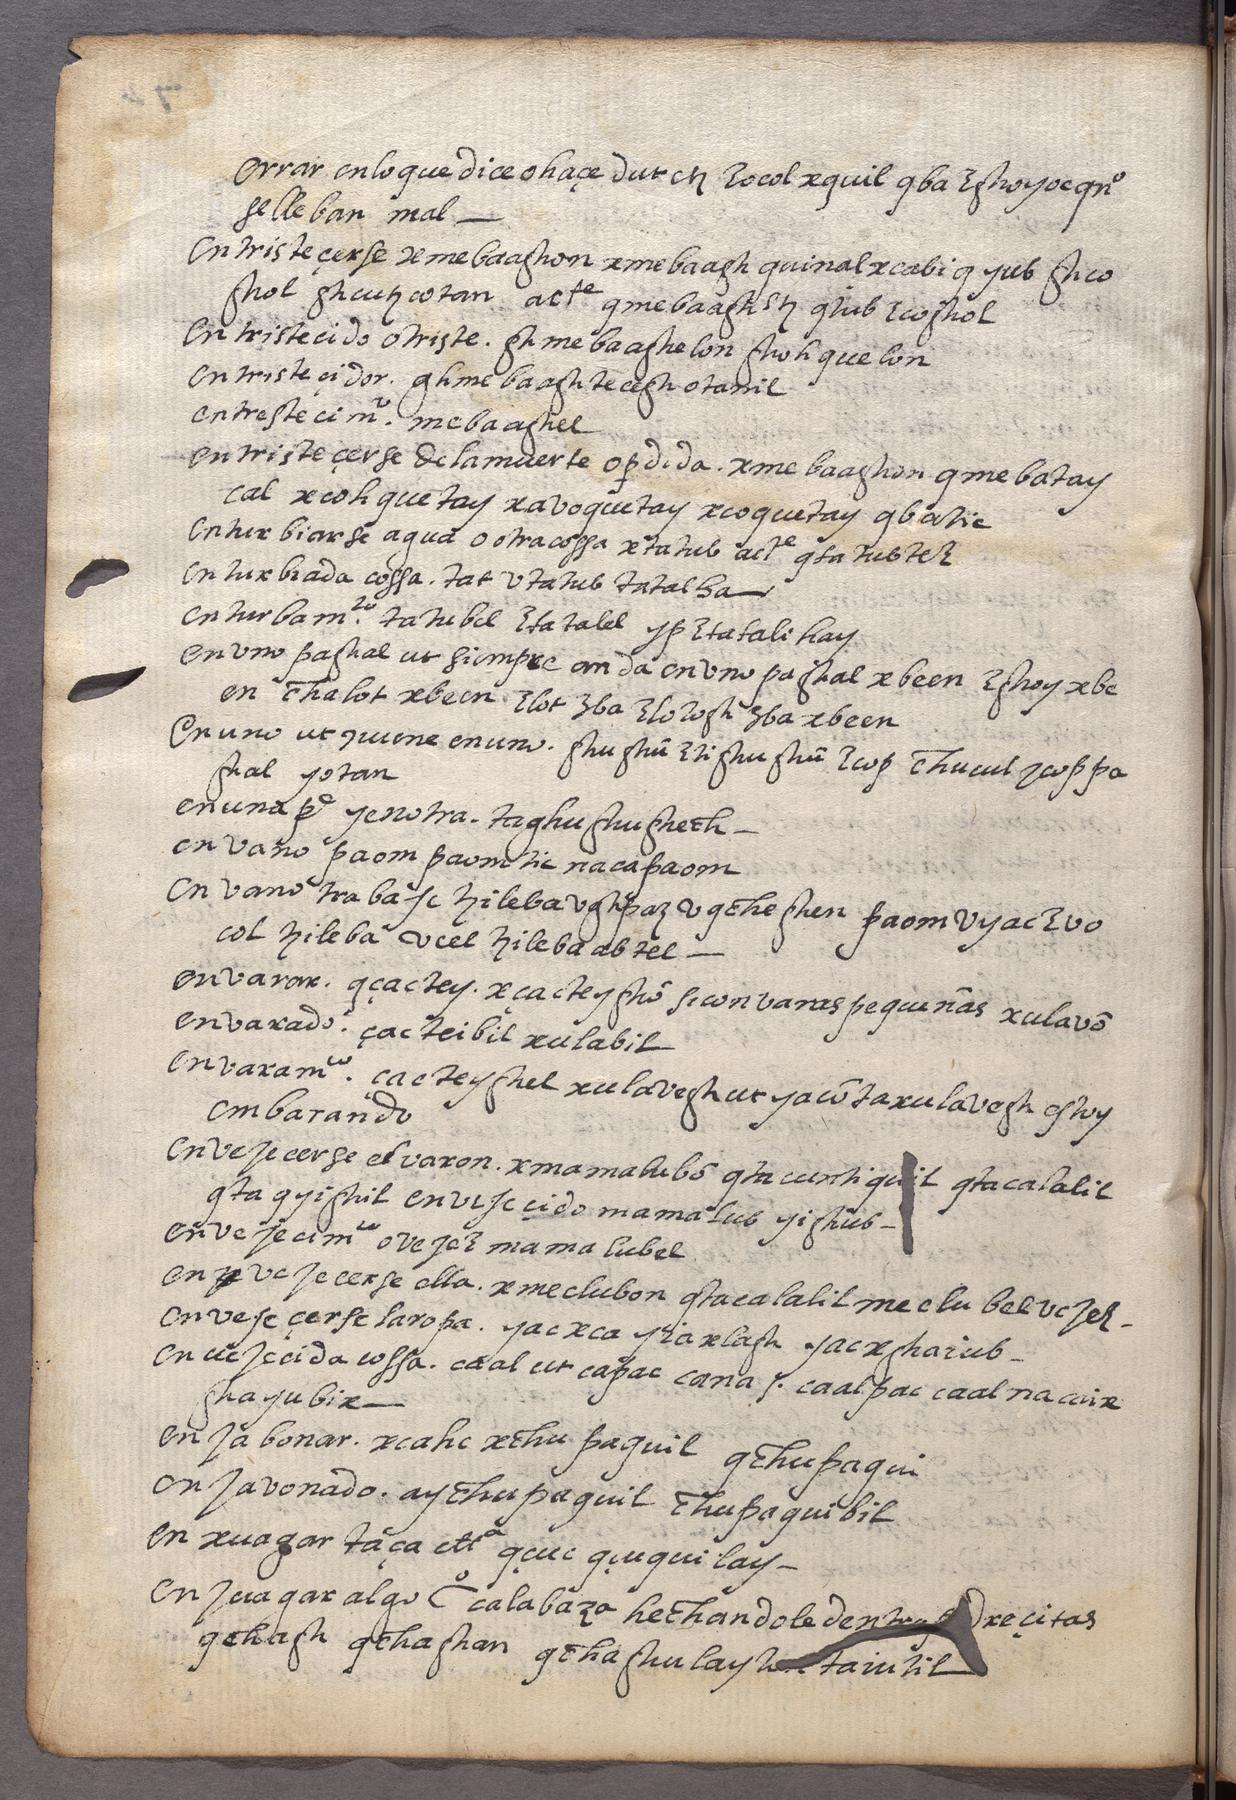 errar en lo que dice o haçe dut ch ꜫocol xquil qba ꜫghoyoc qnº
se lleban mal —
Entristeçerse xmebaaghon xmebaagh quinal xcabi q yub ghco
ghol ghcuꜩ cotan acᵗᵉ qmebaagh qiub ꜫcoghol
Entristecido o triste. ghmebaaghelon ghohquelon
entristeçidor. ghmebaaghtecegh otanil
entresteçimᵗᵒ. mebaaghel
entristeçerse de la muerte o pdida. xmebaaghon qmebatay
cal xcohquetay xavoquetay xcoquetay qbatic
Enturbiarse agua o otra cossa xtatub actᵉ qtatubteꜫ
enturbiada cossa. tat vtatub tatalha
enturbamᵗᵒ. tatubel ꜫtatalel yp ꜫtatalihay
en vno paghal ut siempre anda en vno paghal xbeen ꜫghoy xbe
en c̄halot xbeen ꜫlot ꜫba ꜫlologh ꜫba xbeen
En uno ut juune en uno. ghughū ꜫtighughū ꜫcop c̄hucul jcoppa
ghal yotan
en una pᵉ y en otra. taghughughech —
en vano paom paomtic nacapaom
en vano trabaje ꜩileba vghpaꜩ v qc̄heghen paom vyacꜫvo
col ꜩileba vcel ꜩileba abtel —
envarar. qçactey. xçacteyghō si con varas pequeñas xulavō
envarado. çacteibil xulabil
envaramᵗᵒ. çacteyghel xulavegh ut yacōtaxulavegh estoy
embarando
envejecerse el varon. xmamalubō qtacuntiquil qtacalalil
qta qyighil envejeçido mamalub yighub —
envejecimᵗᵒ o vejeꜫ mamalubel
en vejecerse ella. xmeelubon qtacalalil meelubel vejeꜫ —
envejeçerse la ropa. yacxca yiaxlagh yacxghaiub —
envejecida cossa. caal ut capac cana s. caalpac caal na coix
ghayubix —
enjabonar. xcahc xc̄hupaquil qc̄hupaqui
enjavonado. ayc̄hupaquil c̄hupaquibil
en xuagar taça ettᵃ qçuc qçuquilay —
enjuagar algo Cº calabaza hechandole dentro pedreçitas
qc̄hagh qc̄haghan qc̄haghulay ton taiutil